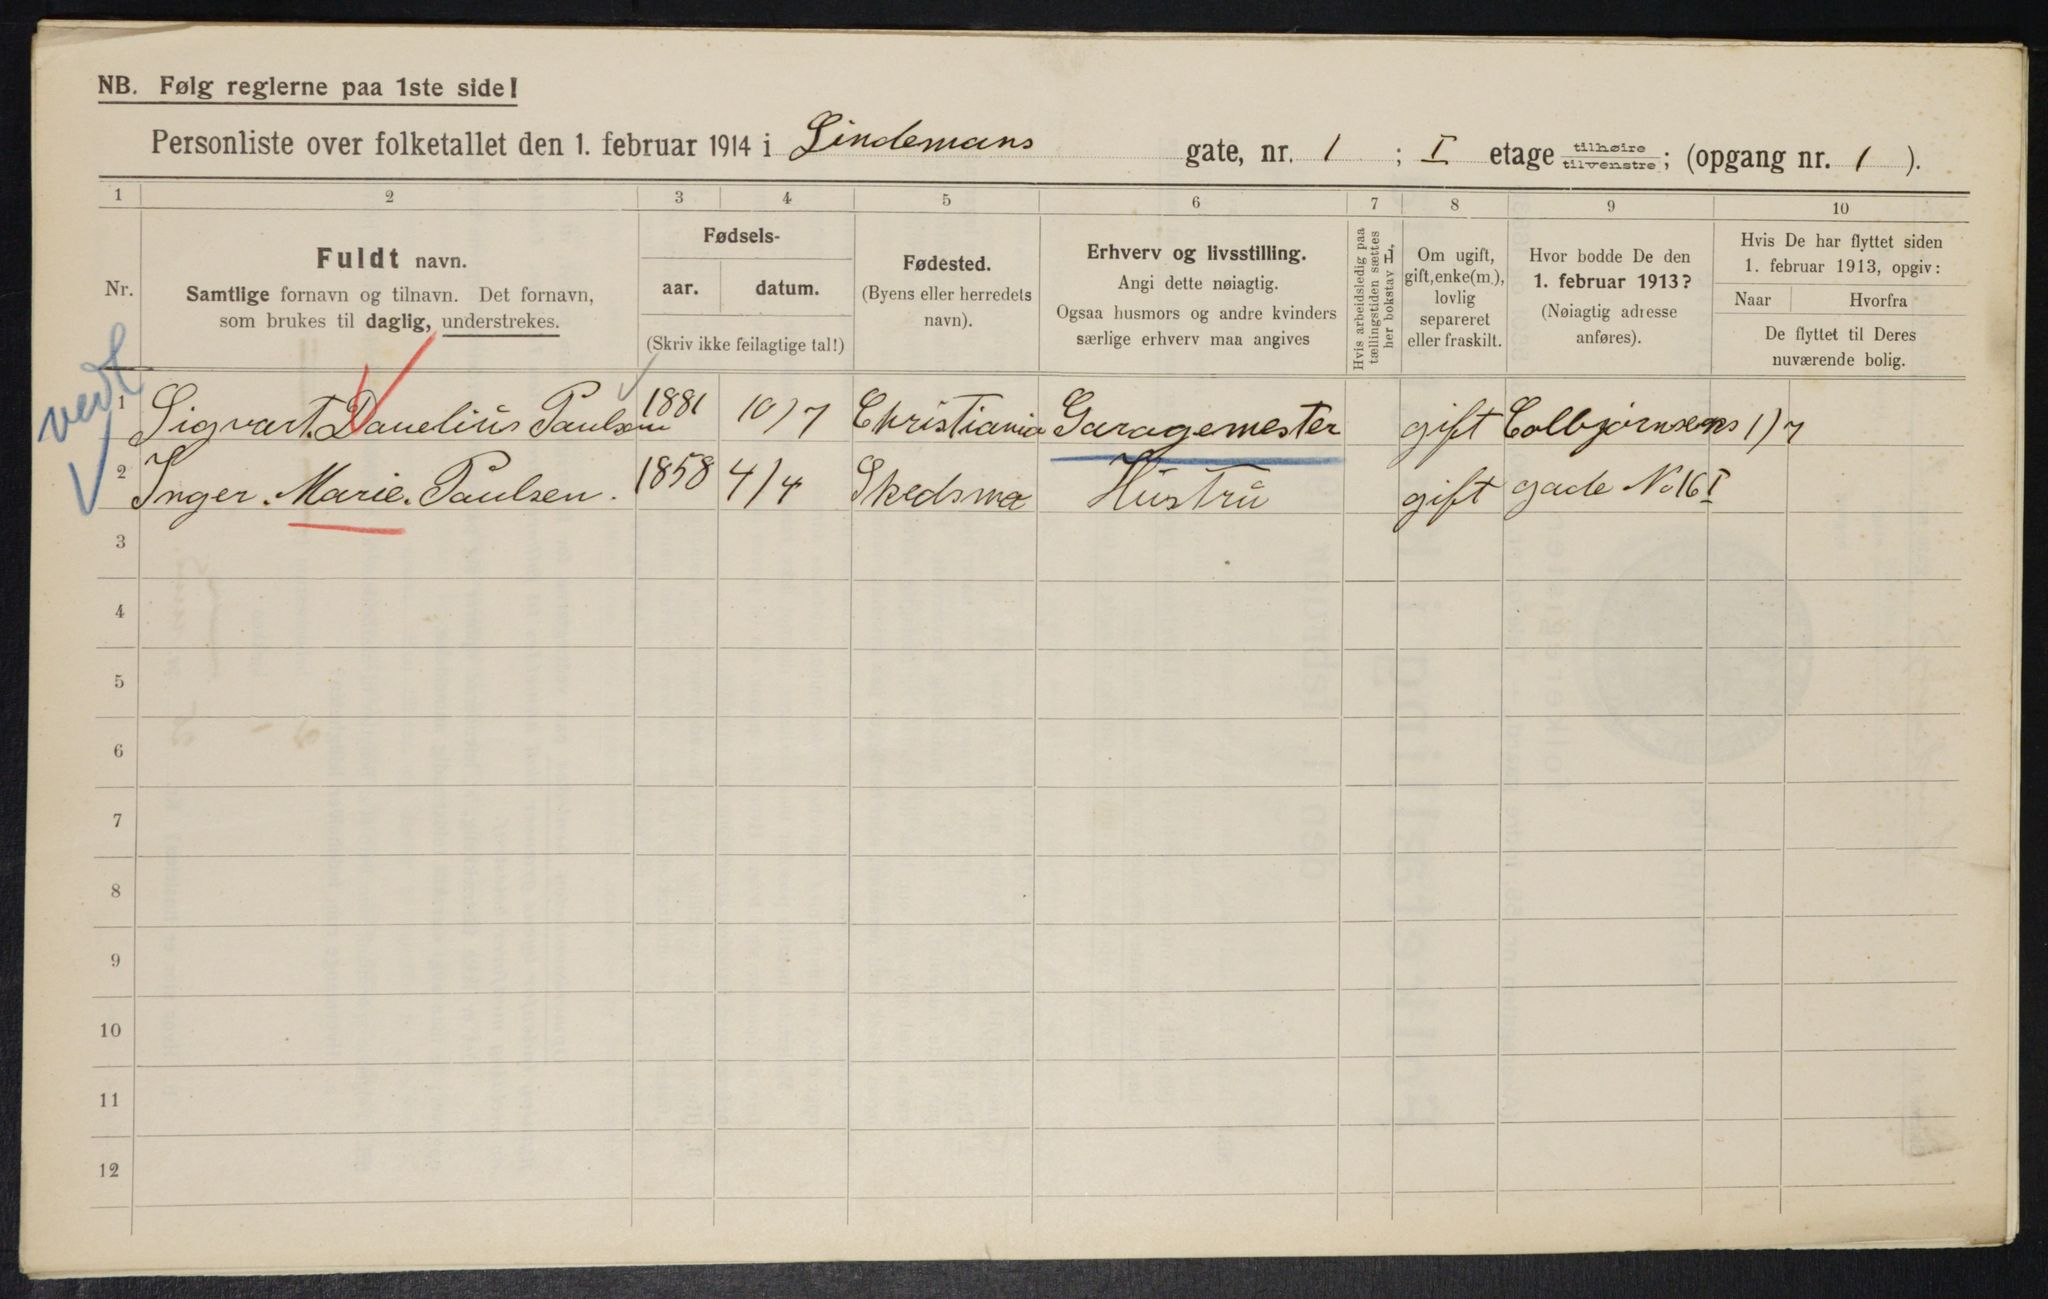 NB. Følg reglerne paa 1ste side!
Personliste over folketallet den 1. februar 1914 i Lindemans gate, nr. 1 ; I etage tilhøire tilvenstre; (opgang nr. 1 ).
1 2 3 4 5 6 7 8 9 10
Nr.
Fuldt navn.
Samtlige fornavn og tilnavn. Det fornavn,
som brukes til daglig, understrekes.
Fødsels-
aar. datum.
(Skriv ikke feilagtige tal!)
Fødested.
(Byens eller herredets
navn).
Erhverv og livsstilling.
Angi dette nøiagtig.
Ogsaa husmors og andre kvinders
særlige erhverv maa angives
Hvis arbeidsledig paa
tællingstiden sættes
her bokstav L,
Om ugift,
gift, enke(m.),
lovlig
separeret
eller fraskilt.
Hvor bodde De den
1. februar 1913?
(Nøiagtig adresse
anføres).
Hvis De har flyttet siden
1. februar 1913, opgiv:
Naar Hvorfra
De flyttet til Deres
nuværende bolig.
1 Sigvart. Danelius Paulsen 1881 10/7 Christiania Garagemester gift Colbjørnsens 1/7
2 Inger. Marie. Paulsen. 1858 4/4 Skedsmo Hustru gift gade No 16 I
3
4
5
6
7
8
9
10
11
12